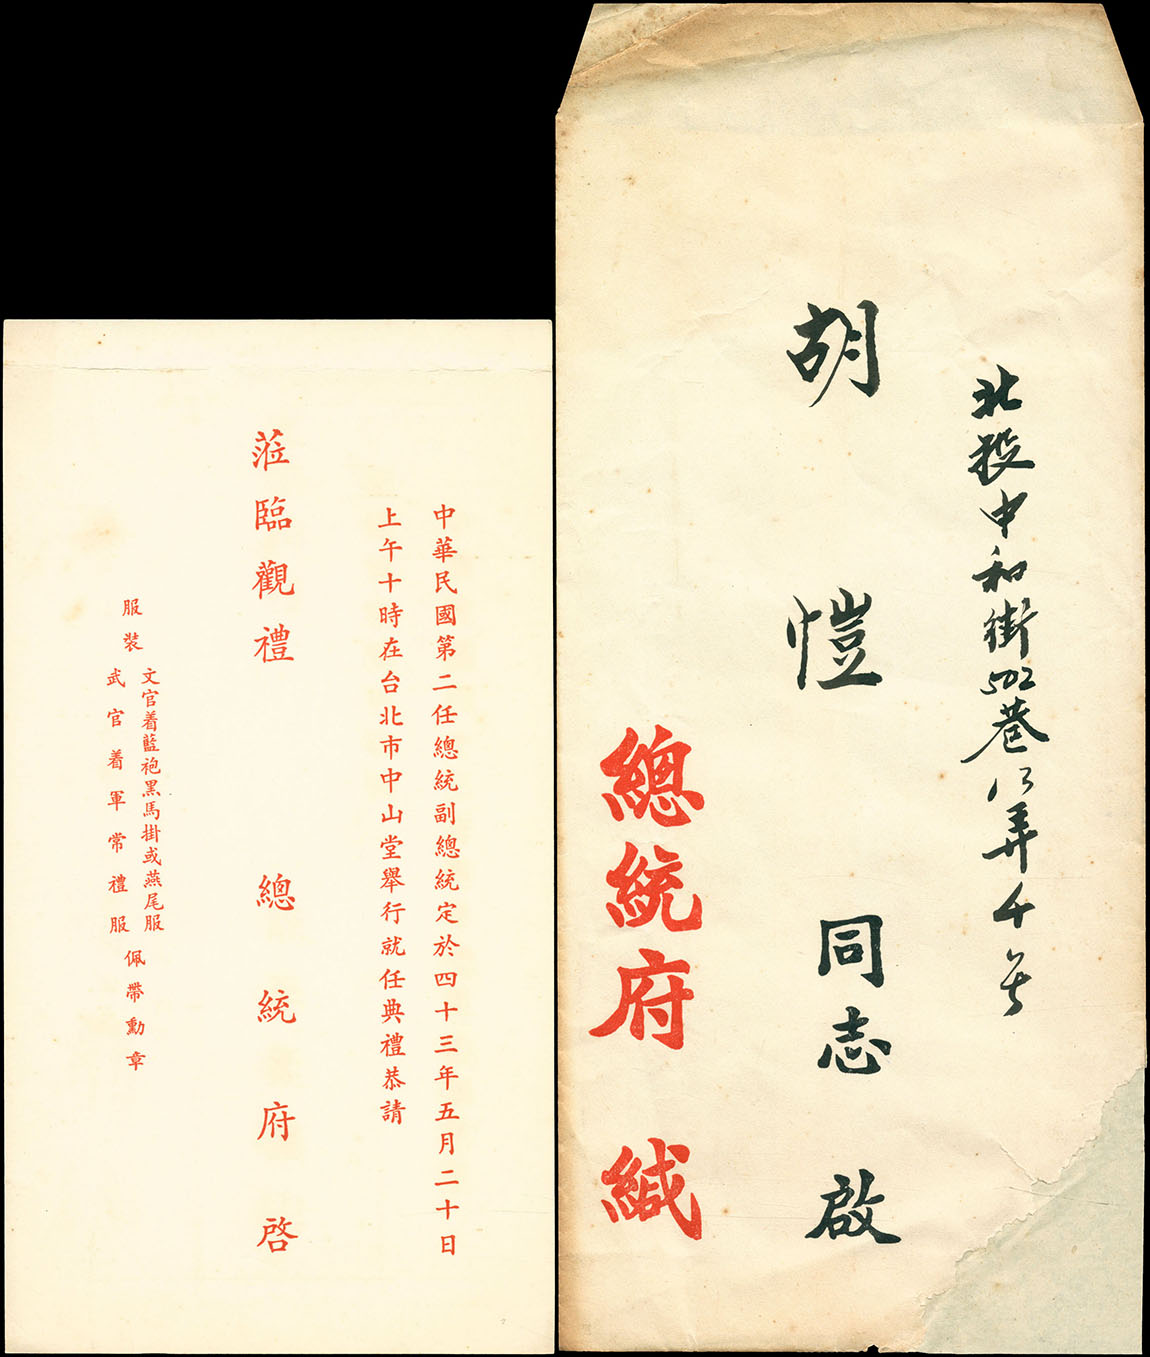 中華民國第二任總統副總統定於四十三年五月二十日
上午十時在台北市中山堂舉行就任典禮恭請
蒞臨觀禮
總統府啓
服裝
文官着藍袍黑馬掛或燕尾服
武官着軍常禮服
佩帶勳章
北投中和街502巷
弄
胡愷同志啟
總統府緘